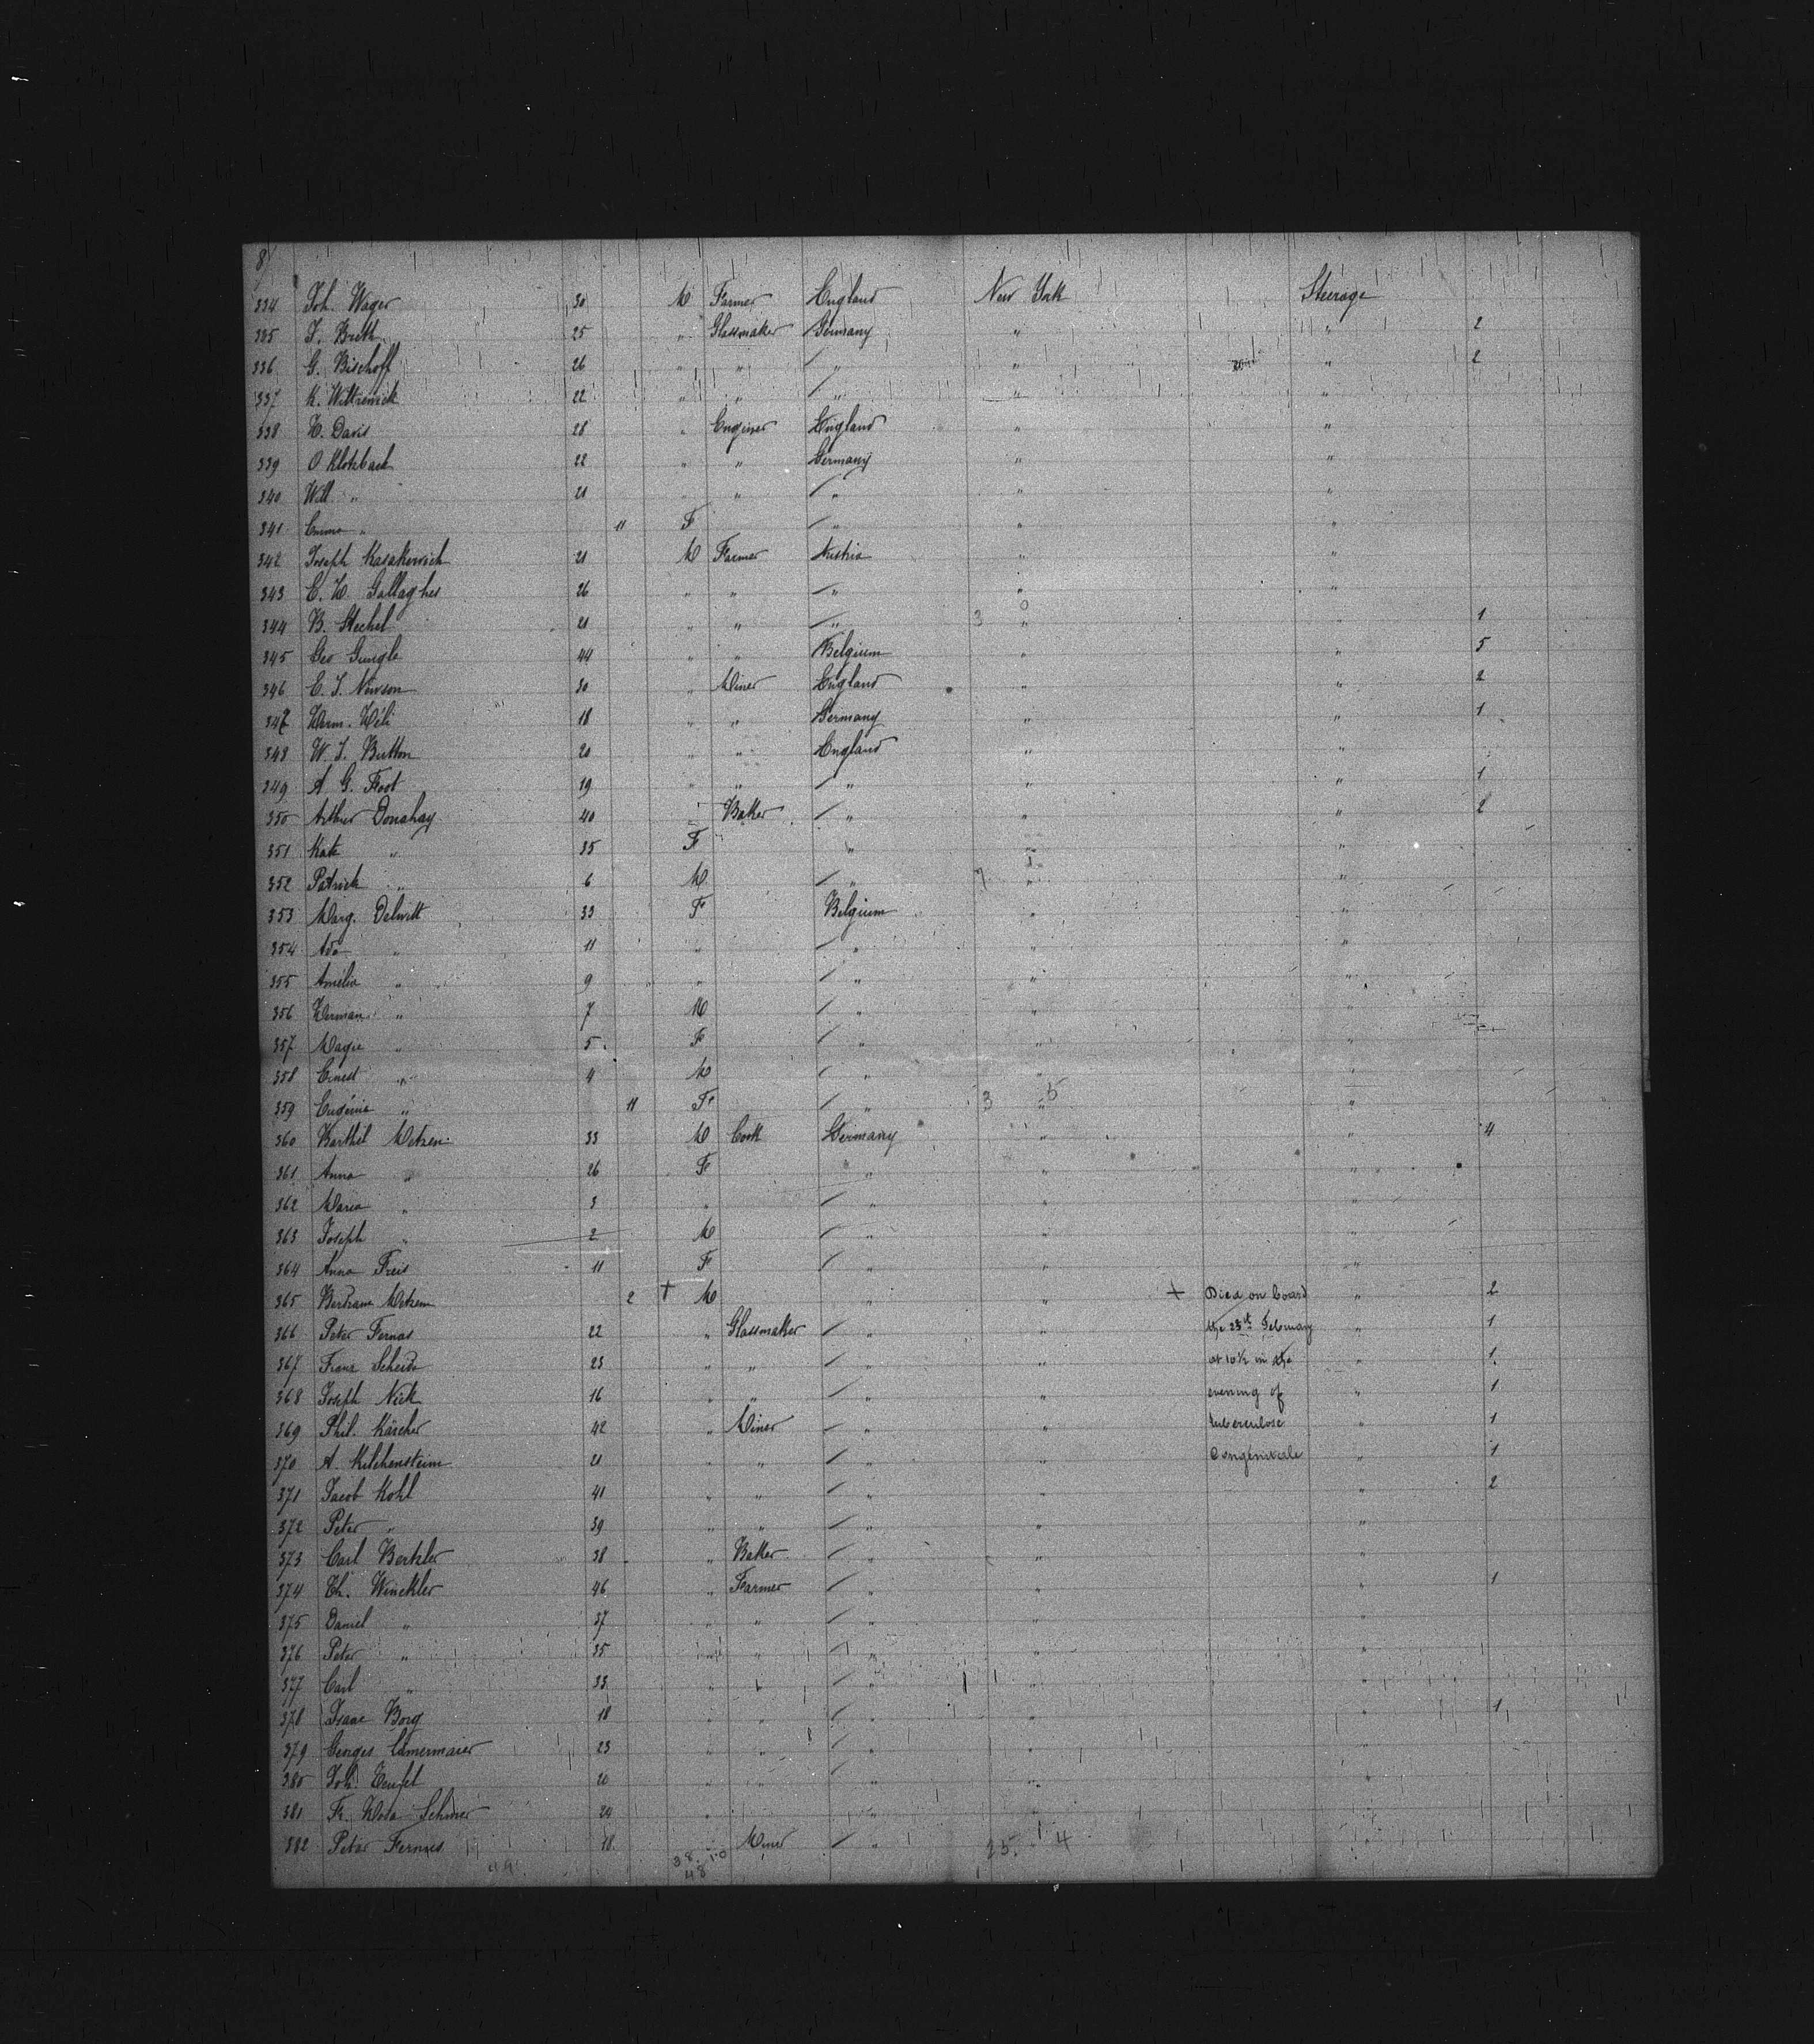 8
334 Joh. Wager 30 M Farmer England New York Steerage
335 25 " Glassmaker Germany " " 2
336 G. Bischoff 26 " " " " " 2
337 K. 22 " " " " "
338 H. Davis 28 " Engineer England " "
339 O Klotzbach 22 " " Germany " "
340 Will " 21 " " " " "
341 Emma " 11 F " " "
342 Joseph Kasakewich 21 M Farmer Austria " "
343 E. H. Gallagher 26 " " " " "
344 B. Stechel 21 " " " 3 0 " " 1
345 Geo Gungle 44 " " Belgium " " 5
346 E. J. Newson 30 " Miner England " " 2
347 Herm. 18 " " Germany " " 1
348 W. J. Button 20 " " England " "
349 A G. Foot 19 " " " " " 1
350 Arthur Donahay 40 " Baker " " " 2
351 Kate " 35 F " " "
352 Patrick " 6 M " 7 1 " "
353 Marg. Delwitt 33 F Belgium " "
354 Ada " 11 " " " "
355 Amelia " 9 " " " "
356 Herman " 7 M " " "
357 " 5 F " " "
358 Ernest " 4 M " " "
359 Eugénie " 11 F " 3 5 " "
360 Barthel Metzen 33 M Cook Germany " " 4
361 Anna " 26 F " " "
362 Maria " 3 " " " "
363 Joseph " 2 M " " "
364 Anna Freis 11 F " " "
365 Bertram Metzen 2 + M " " + Died on board " 2
366 Peter Fernas 22 " Glassmaker " " the 25th February " 1
367 Franz Scheid 23 " " " " at 10½ in the " 1
368 Joseph Nick 16 " " " " evening of " 1
369 Phil. Kärcher 42 " Miner " " tuberculose " 1
370 A. Kelchenstein 21 " " " " " 1
371 Jacob Kohl 41 " " " " " 2
372 Peter " 39 " " " " "
373 Carl Bertzler 38 " Baker " " "
374 Ch. Winckler 46 " Farmer " " " 1
375 Daniel " 37 " " " " "
376 Peter " 35 " " " " "
377 Carl " 33 " " " " "
378 Isaac Borg 18 " " " " " 1
379 Georges 23 " " " " "
380 Joh. 20 " " " " "
381 24 " " " "
382 Peter 18 " Miner " 25 1 4 "
38 10
48